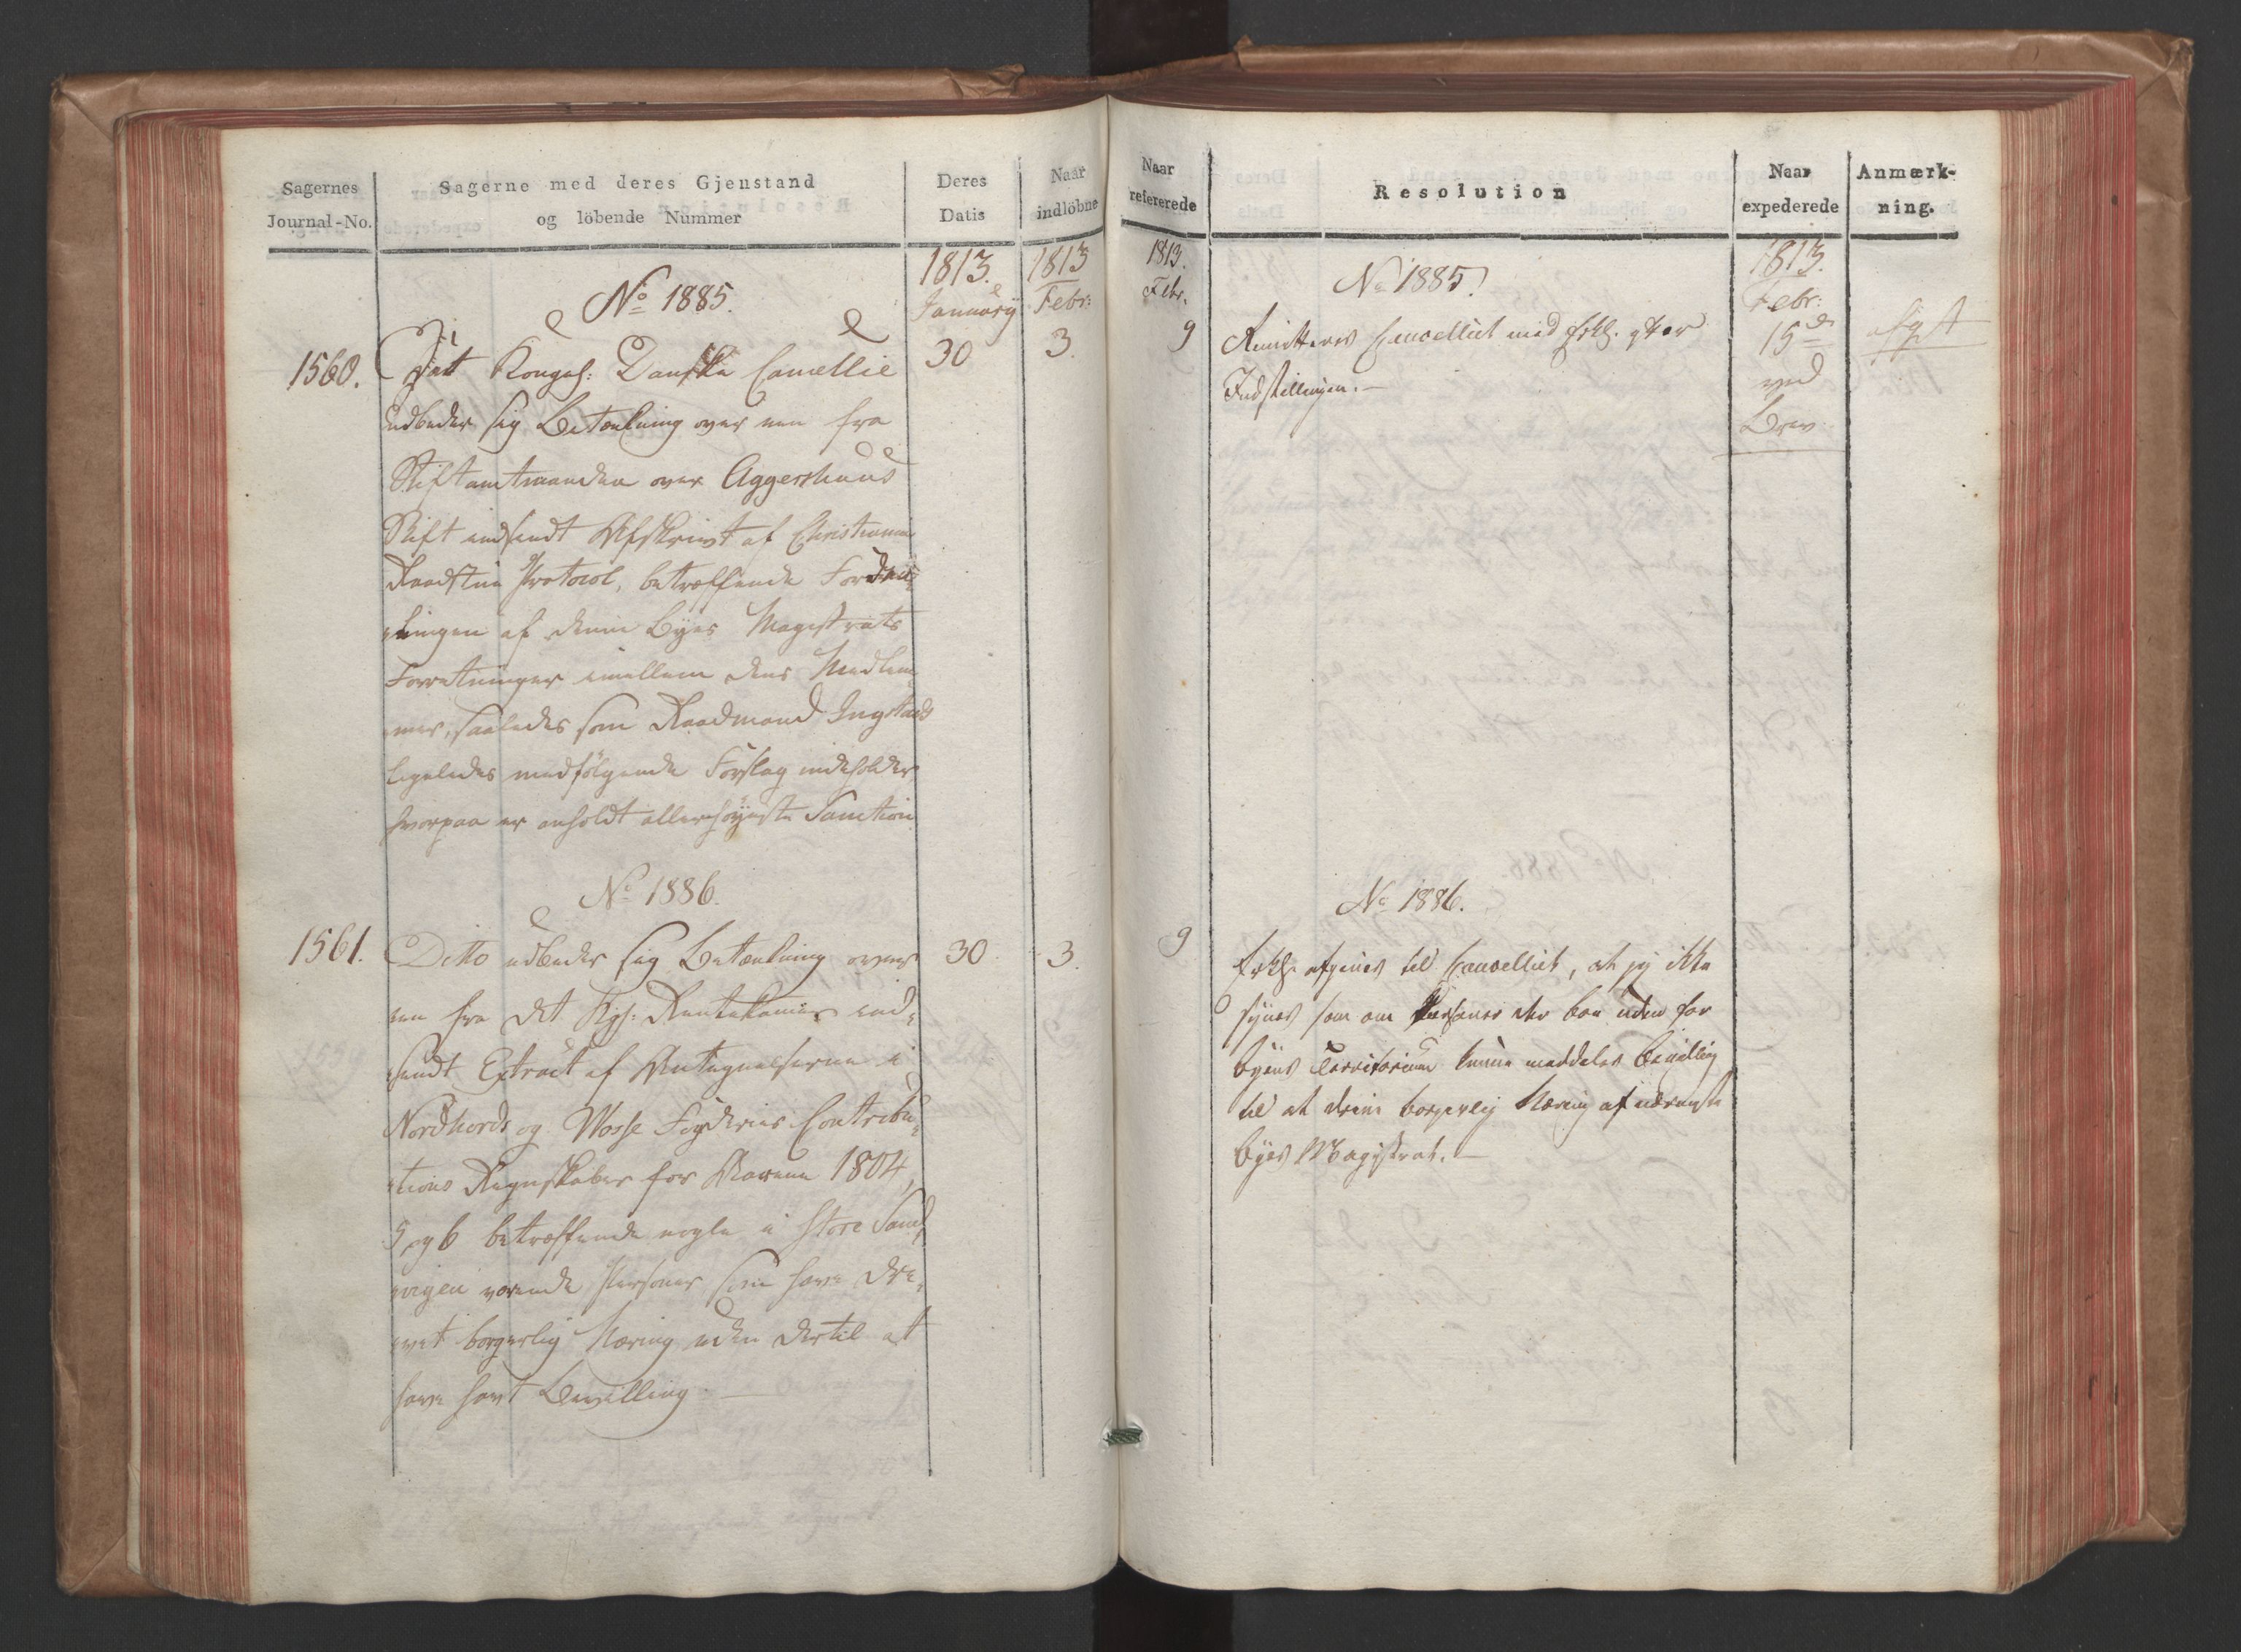 Sagernes
Journal-No.
Sagerne med deres Gjenstand
og löbende Nummer
Deres
Datis
Naar
indlöbne
1813.
January
1813
Febr:
No 1885.
1560.
30
3.
Det Kongel: Danske Cancellie
udbeder sig Betænkning over en fra
Stiftamtmanden over Aggershuus
Stift indsendt Afskrivt af Christiania
Raadstue Protocol, betræffende Fordee-
lingen af denne Byes Magistrats
Forretninger imellem dens Medlem-
mer, saaledes som Raadmand Ingstads
ligeledes medfölgende Forslag indeholder
hvorpaa er anholdt allerhöyeste Sanction
No 1886.
1561.
Ditto udbeder sig Betænkning over
30
3.
en fra det Kgl: Rentekamer ind-
sendt Extract af Antegnelserne i
Nordhords og Wosse Fogderies Contribu-
tions Regnskaber for Aarene 1804,
5 og 6 betræffende nogle i Store
værende Personer som have dre-
vet borgerlig Næring uden dertil at
have havt Bevilling. —
Naar
refererede
Resolution
Naar
expederede
Anmærk-
ning.
1813.
Febr.
1813.
Febr:
No 1885.
9
Remitteres Cancelliet med Erkl. efter
Indstillingen. —
15de
ved
Brev
afgt
No 1886.
9
Erkl. afgives til Cancelliet, at jeg ikke
synes som om Personer der boe uden for
Byens Territorium kunne meddeles Bevilling
til at drive borgerlig Næring af nærmeste
Byes Magistrat. —